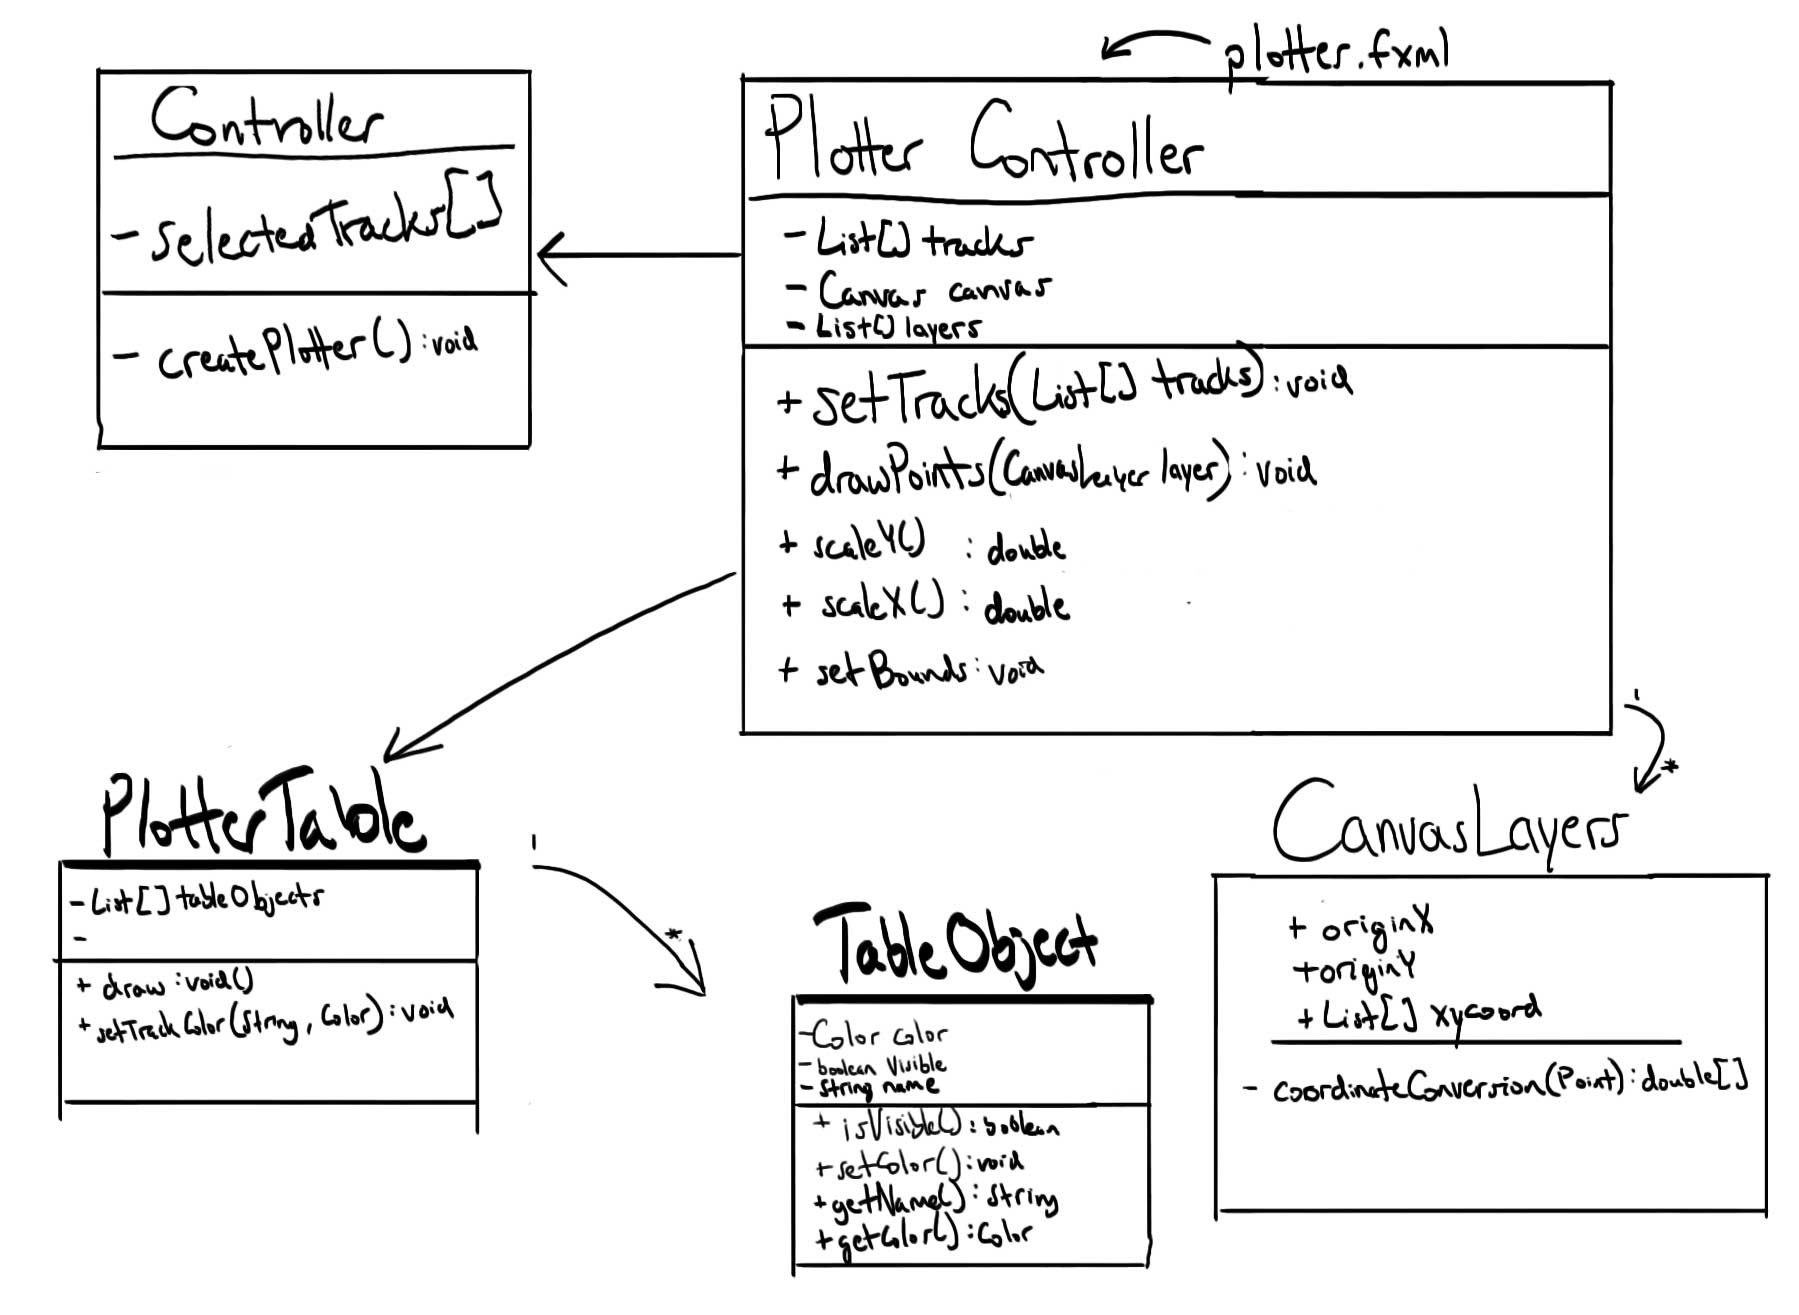 plotter.fxml
Controller
- selectedTracks[]
- createPlotter() : void
Plotter Controller
- List[] tracks
- Canvas canvas
- List[] layers
+ setTracks(List[] tracks) : void
+ drawPoints(CanvasLayer layer) : void
+ scaleY() : double
+ scaleX() : double
+ setBounds : void
1
*
PlotterTable
- List[] tableObjects
-
+ draw : void()
+ setTrackColor(String, Color) : void
1
*
TableObject
- Color color
- boolean Visible
- String name
+ isVisible() : boolean
+ setColor() : void
+ getName() : String
+ getColor() : Color
CanvasLayers
+ originX
+ originY
+ List[] xycoord
- coordinateConversion(Point) : double[]